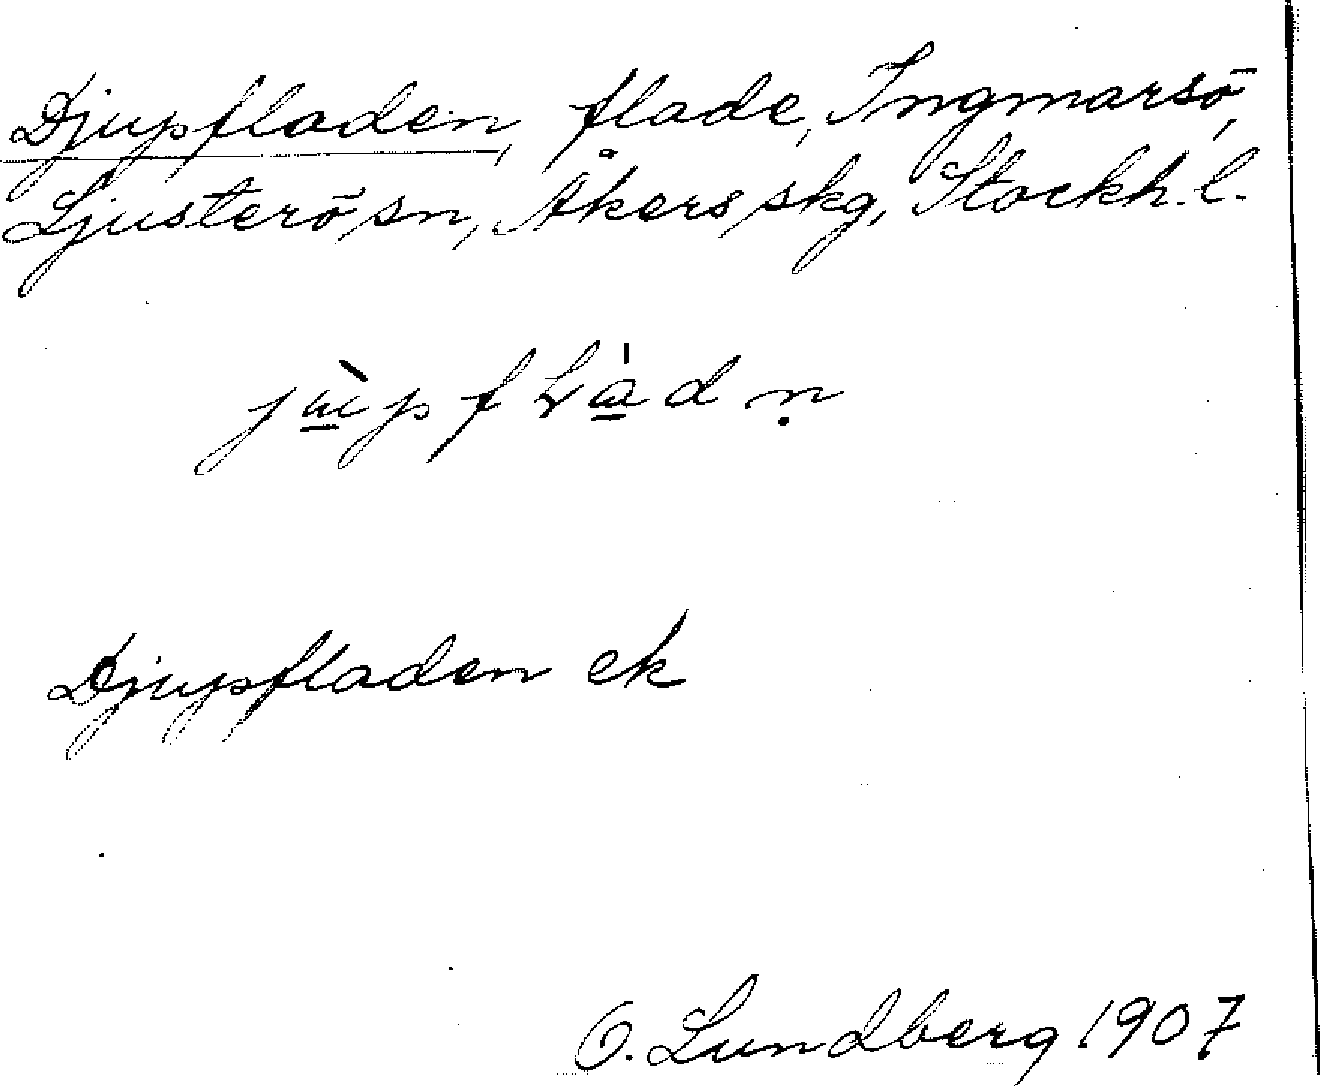 Djupfladen, flade, Ingmarsö,
Ljusterö sn, Åkers skg, Stockh. l.
Djupfladen ek
O. Lundberg 1907